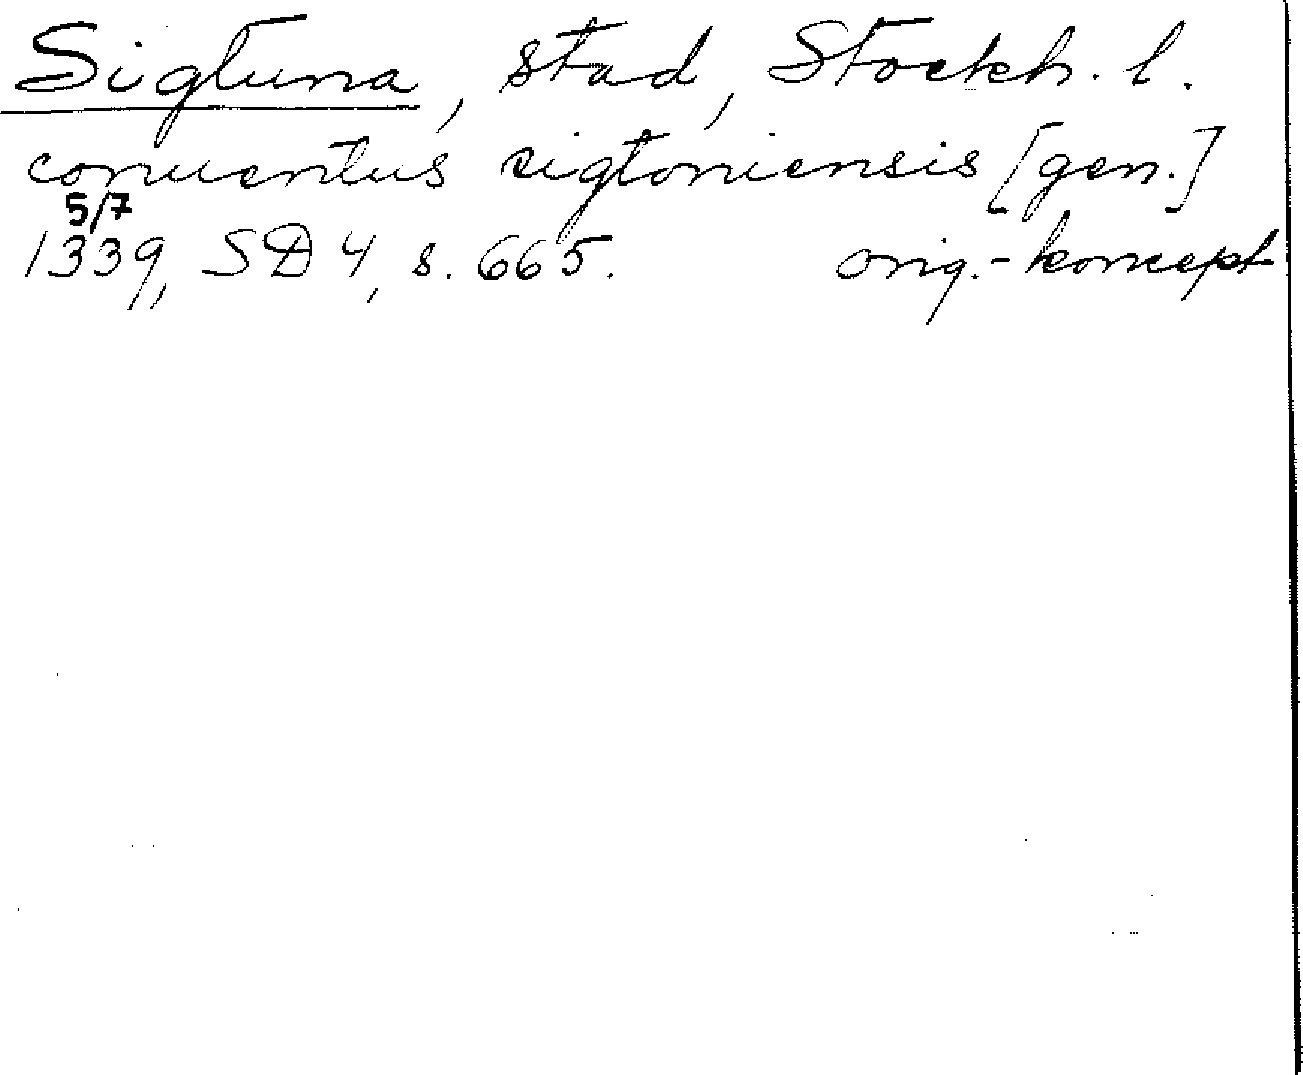 Sigtuna, stad, Stockh. l.
conuentus sigtoniensis [gen.]
5/7
1339, SD 4, s. 665. orig.-koncept